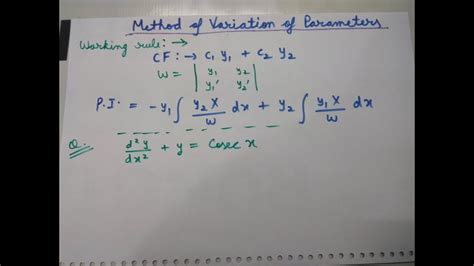 Method of Variation of Parameters
Working rule:→
CF:→ c₁ y₁ + c₂ y₂
W = | y₁ y₂ |
| y₁' y₂' |
P.I. = -y₁ ∫ y₂ X / W dx + y₂ ∫ y₁ X / W dx
Q. d²y/dx² + y = Cosec x